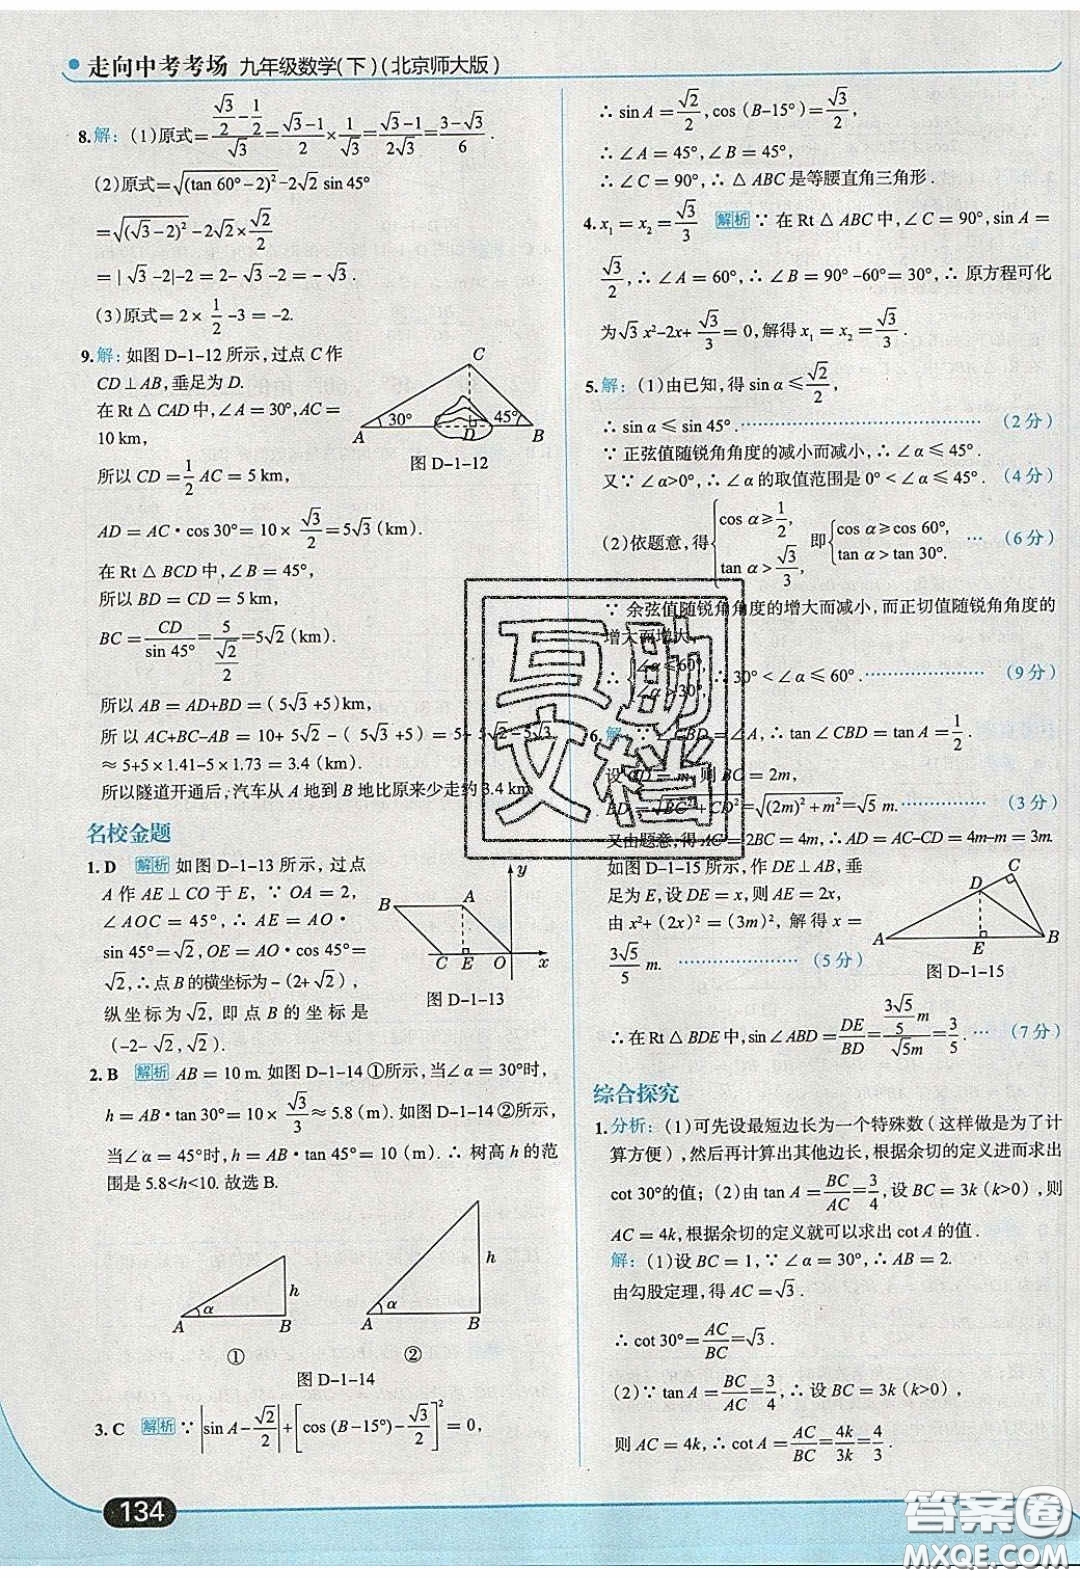 走向中考考场 九年级数学(下)(北京师大版)
8.解:(1)原式=(√3/2-1/2)/√3=(√3-1)/2×1/√3=(√3-1)/2√3=(3-√3)/6.
(2)原式=√((tan 60°-2)²)-2√2 sin 45°
=√((√3-2)²)-2√2×√2/2
=|√3-2|-2=2-√3-2=-√3.
(3)原式=2×1/2-3=-2.
9.解:如图D-1-12所示,过点C作
CD⊥AB,垂足为D.
在Rt△CAD中,∠A=30°,AC=
10 km,
所以CD=1/2 AC=5 km,
C
30°
45°
A
D
B
图D-1-12
AD=AC·cos 30°=10×√3/2=5√3(km).
在Rt△BCD中,∠B=45°,
所以BD=CD=5 km,
BC=CD/sin 45°=5/(√2/2)=5√2(km).
所以AB=AD+BD=(5√3+5)km,
所以AC+BC-AB=10+5√2-(5√3+5)=5+5√2-5√3
≈5+5×1.41-5×1.73=3.4(km).
所以隧道开通后,汽车从A地到B地比原来少走约3.4 km.
名校金题
1.D 解析 如图D-1-13所示,过点
A作AE⊥CO于E,∵OA=2,
∠AOC=45°,∴AE=AO·
sin 45°=√2,OE=AO·cos 45°=
√2,∴点B的横坐标为-(2+√2),
纵坐标为√2,即点B的坐标是
(-2-√2,√2).
y
B
A
C
E
O
x
图D-1-13
2.B 解析 AB=10 m.如图D-1-14①所示,当∠α=30°时,
h=AB·tan 30°=10×√3/3≈5.8(m).如图D-1-14②所示,
当∠α=45°时,h=AB·tan 45°=10(m).∴树高h的范
围是5.8<h<10.故选B.
h
α
A
B
①
h
α
A
B
②
图D-1-14
3.C 解析 ∵|sin A-√2/2|+[cos(B-15°)-√3/2]²=0,
134
∴sin A=√2/2,cos(B-15°)=√3/2,
∴∠A=45°,∠B=45°,
∴∠C=90°,∴△ABC是等腰直角三角形.
4.x₁=x₂=√3/3 解析 ∵在Rt△ABC中,∠C=90°,sin A=
√3/2,∴∠A=60°,∴∠B=90°-60°=30°,∴原方程可化
为√3x²-2x+√3/3=0,解得x₁=x₂=√3/3.
5.解:(1)由已知,得sin α≤√2/2,
∴sin α≤sin 45°.……(2分)
∵正弦值随锐角角度的减小而减小,∴∠α≤45°.
又∵∠α>0°,∴∠α的取值范围是0°<∠α≤45°.(4分)
(2)依题意,得{cos α≥1/2, tan α>√3/3, 即{cos α≥cos 60°, tan α>tan 30°. …(6分)
∵余弦值随锐角角度的增大而减小,而正切值随锐角角度的
增大而增大,
∴{∠α≤60°, ∠α>30°, ∴30°<∠α≤60°.……(9分)
6.解:∵∠CBD=∠A,∴tan∠CBD=tan A=1/2.
设CD=m,则BC=2m,
BD=√(BC²+CD²)=√((2m)²+m²)=√5 m.……(3分)
又由题意,得AC=2BC=4m,∴AD=AC-CD=4m-m=3m.
如图D-1-15所示,作DE⊥AB,垂
足为E,设DE=x,则AE=2x,
由x²+(2x)²=(3m)²,解得x=
3√5/5 m.……(5分)
C
D
A
E
B
图D-1-15
∴在Rt△BDE中,sin∠ABD=DE/BD=(3√5/5 m)/(√5m)=3/5.…(7分)
综合探究
1.分析:(1)可先设最短边长为一个特殊数(这样做是为了计
算方便),然后再计算出其他边长,根据余切的定义进而求出
cot 30°的值;(2)由tan A=BC/AC=3/4,设BC=3k(k>0),则
AC=4k,根据余切的定义就可以求出cot A的值.
解:(1)设BC=1,∵∠α=30°,∴AB=2.
由勾股定理,得AC=√3.
∴cot 30°=AC/BC=√3.
(2)∵tan A=BC/AC=3/4,∴设BC=3k(k>0),
则AC=4k,∴cot A=AC/BC=4k/3k=4/3.
互助
文档
答案圈
MXQE.COM